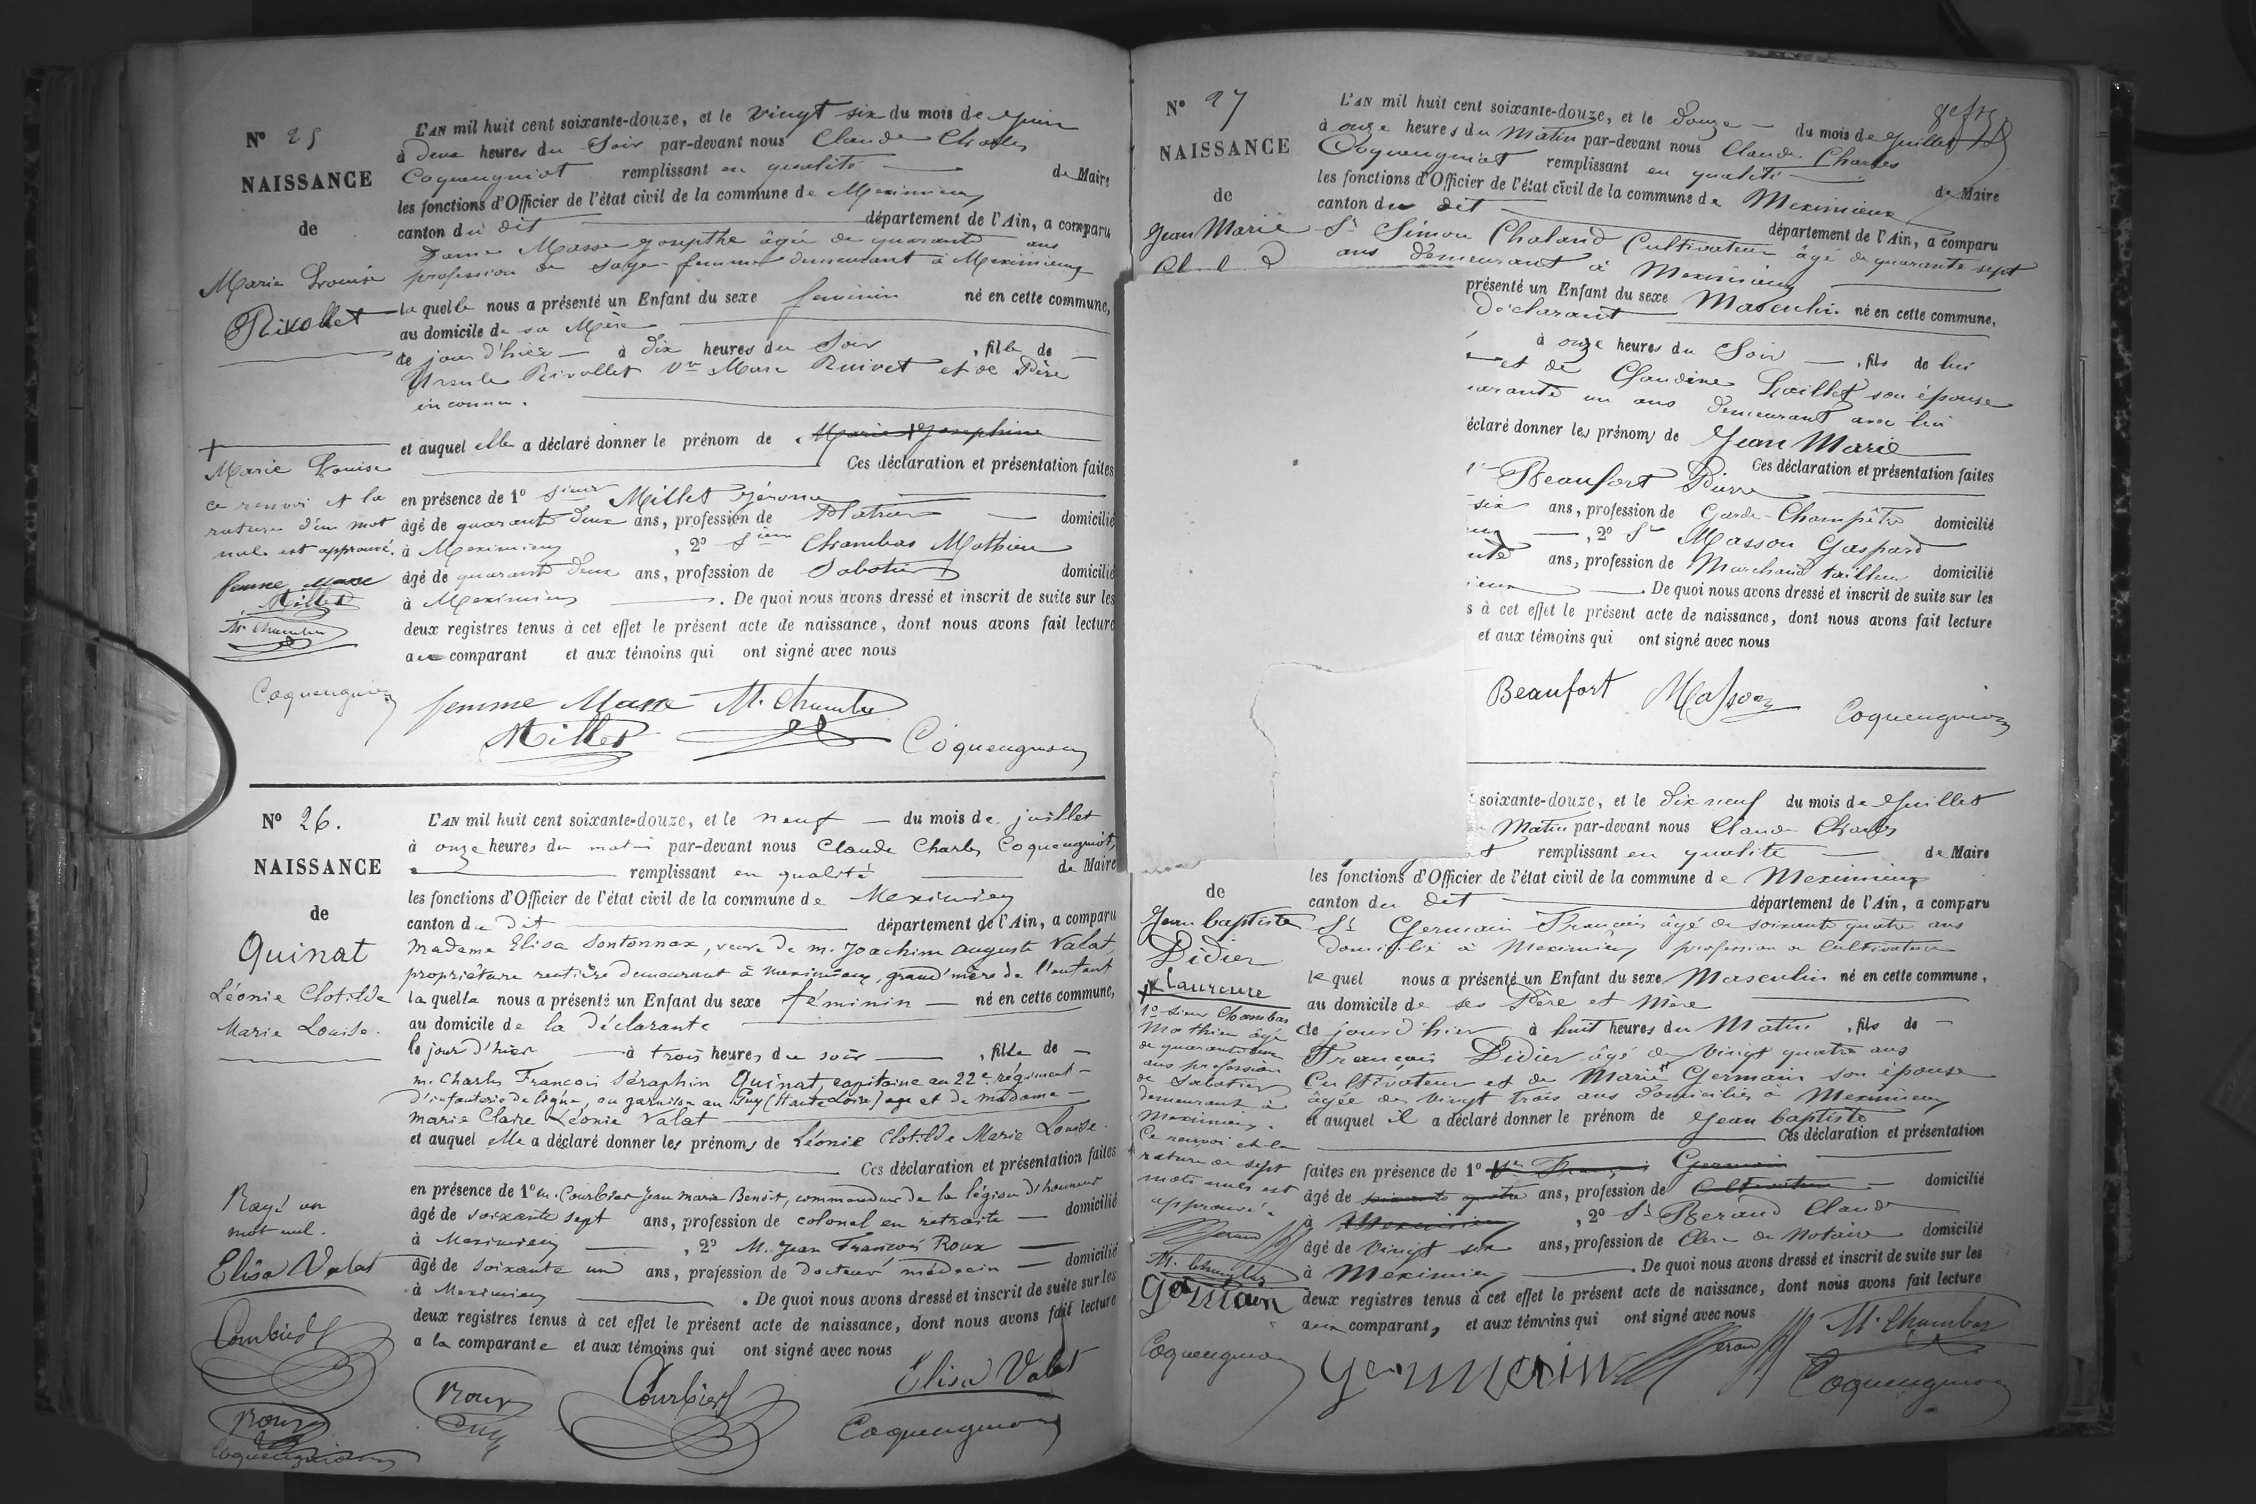 N° 25
NAISSANCE
de
Marie Louise
Rivollet
L'AN mil huit cent soixante-douze, et le vingt six du mois de Juin
à deux heures du Soir par-devant nous Claude Charles
Coquengniot remplissant en qualité de Maire
les fonctions d'Officier de l'état civil de la commune de Meximieux
canton du dit département de l'Ain, a comparu
Dame Masse Josepthe âgée de quarante ans
profession de Sage-femme demeurant à Meximieux
la quelle nous a présenté un Enfant du sexe feminin né en cette commune,
au domicile de sa Mère
le jour d'hier à dix heures du Soir, fille de
Ursule Rivollet Vve Marc Ruivet et de Père
inconnu.
et auquel elle a déclaré donner le prénom de Marie Josephine
Ces déclaration et présentation faites
en présence de 1° Sieur Millet Jérome
âgé de quarante deux ans, profession de Platrier domicilié
à Meximieux, 2° Sieur Chambas Mathieu
âgé de quarante deux ans, profession de Sabotier domicilié
à Meximieux. De quoi nous avons dressé et inscrit de suite sur les
deux registres tenus à cet effet le présent acte de naissance, dont nous avons fait lecture
au comparant et aux témoins qui ont signé avec nous
Marie Louise
ce renvoi et la
rature d'un mot
nul est approuvé.
femme Masse
Millet
M. Chambas
Coquengniot
femme Masse M. Chambas
Millet
Coquengniot
N° 26.
NAISSANCE
de
Quinat
Léonie Clotilde
Marie Louise.
L'AN mil huit cent soixante-douze, et le neuf du mois de juillet
à onze heures du matin par-devant nous Claude Charles Coquengniot,
remplissant en qualité de Maire
les fonctions d'Officier de l'état civil de la commune de Meximieux
canton du dit département de l'Ain, a comparu
Madame Elisa Sontonnax, veuve de M. Joachim Auguste Valat,
propriétaire rentière demeurant à Meximieux, grand'mère de l'enfant
la quelle nous a présenté un Enfant du sexe féminin né en cette commune,
au domicile de la déclarante
le jour d'hier à trois heures du soir, fille de
M. Charles François Séraphin Quinat, capitaine au 22e régiment
d'infanterie de ligne, en garnison au Puy (Haute Loire) et de madame
Marie Claire Léonie Valat
et auquel elle a déclaré donner les prénoms de Léonie Clotilde Marie Louise.
Ces déclaration et présentation faites
en présence de 1° M. Courbier Jean Marie Benoit, commandeur de la légion d'honneur
âgé de soixante sept ans, profession de colonel en retraite domicilié
à Meximieux, 2° M. Jean François Roux
âgé de soixante un ans, profession de docteur médecin domicilié
à Meximieux. De quoi nous avons dressé et inscrit de suite sur les
deux registres tenus à cet effet le présent acte de naissance, dont nous avons fait lecture
a la comparante et aux témoins qui ont signé avec nous
Rayé un
mot nul.
Elisa Valat
Courbier
Roux
Coquengniot
Roux
Courbier
Elisa Valat
Coquengniot
N° 27
NAISSANCE
de
Jean Marie
L'AN mil huit cent soixante-douze, et le douze du mois de Juillet
à onze heures du Matin par-devant nous Claude Charles
Coquengniot remplissant en qualité de Maire
les fonctions d'Officier de l'état civil de la commune de Meximieux
canton du dit département de l'Ain, a comparu
Sr Simon Chaland Cultivateur âgé de quarante sept
ans demeurant à Meximieux
présenté un Enfant du sexe Masculin né en cette commune,
déclarant
à onze heures du Soir, fils de lui
et de Claudine Loillet son épouse
un ans demeurant avec lui
éclaré donner les prénoms de Jean Marie
Ces déclaration et présentation faites
Beaufort Pierre
six ans, profession de Garde-Champêtre domicilié
, 2° Sr Masson Gaspard
ans, profession de Marchand tailleur domicilié
. De quoi nous avons dressé et inscrit de suite sur les
s à cet effet le présent acte de naissance, dont nous avons fait lecture
et aux témoins qui ont signé avec nous
Beaufort Masson
Coquengniot
soixante-douze, et le dix neuf du mois de Juillet
Matin par-devant nous Claude Charles
remplissant en qualité de Maire
les fonctions d'Officier de l'état civil de la commune de Meximieux
canton du dit département de l'Ain, a comparu
de
Jean baptiste
Didier
Sr Germain François âgé de soixante quatre ans
domicilié à Meximieux profession de Cultivateur
lequel nous a présenté un Enfant du sexe Masculin né en cette commune,
au domicile de ses Père et Mère
le jour d'hier à huit heures du Matin, fils de
François Didier âgé de vingt quatre ans
Cultivateur et de Marie Germain son épouse
âgée de vingt trois ans domiciliés à Meximieux
et auquel il a déclaré donner le prénom de Jean baptiste
Ces déclaration et présentation
faites en présence de 1° Sr François Germain
âgé de soixante quatre ans, profession de Cultivateur domicilié
à Meximieux, 2° Sr Beraud Claude
âgé de vingt six ans, profession de Clerc de Notaire domicilié
à Meximieux. De quoi nous avons dressé et inscrit de suite sur les
deux registres tenus à cet effet le présent acte de naissance, dont nous avons fait lecture
aux comparant, et aux témoins qui ont signé avec nous
Laurence
1° Sieur Chambas
Mathieu âgé
de quarante deux
ans profession
de Sabotier
demeurant à
Meximieux.
Ce renvoi et la
rature de sept
mots nuls est
approuvé.
Beraud
M. Chambas
Germain
Coquengniot
Germain Beraud M. Chambas
Coquengniot